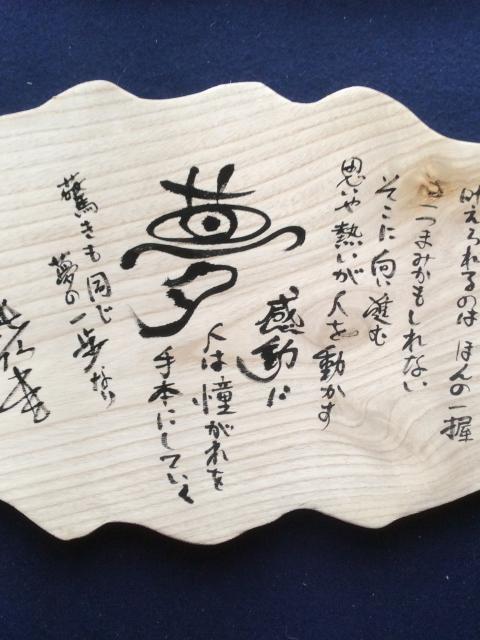 叶えられるのは ほんの一握
つまみかもしれない
そこに向い進む
思や熱いが人を動かす
感動に
人は憧がれを
手本にしていく
夢
驚きも同じ
夢の一歩なり